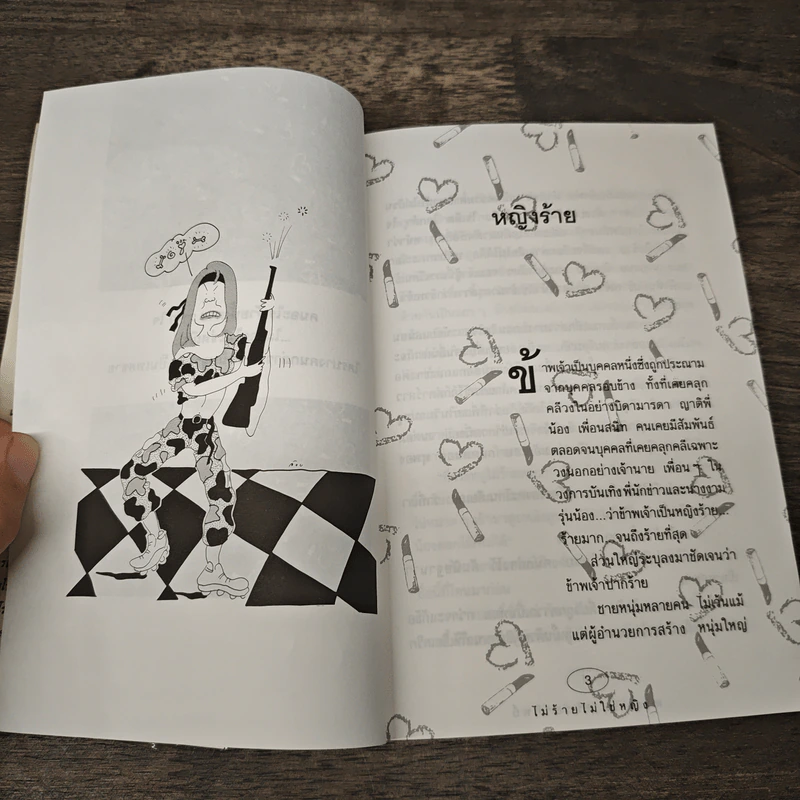 หญิงร้าย
ข้าพเจ้าเป็นบุคคลหนึ่งซึ่งถูกประณาม
จากบุคคลรอบข้าง ทั้งที่เคยคลุก
คลีวงในอย่างบิดามารดา ญาติพี่
น้อง เพื่อนสนิท คนเคยมีสัมพันธ์
ตลอดจนบุคคลที่เคยคลุกคลีเฉพาะ
วงนอกอย่างเจ้านาย เพื่อน ๆ ใน
วงการบันเทิงพี่นักข่าวและนางงาม
รุ่นน้อง...ว่าข้าพเจ้าเป็นหญิงร้าย...
ร้ายมาก...จนถึงร้ายที่สุด
ส่วนใหญ่ระบุลงมาชัดเจนว่า
ข้าพเจ้าปากร้าย
ชายหนุ่มหลายคน ไม่เว้นแม้
แต่ผู้อำนวยการสร้าง หนุ่มใหญ่
3
ไม่ร้ายไม่ใช่หญิง